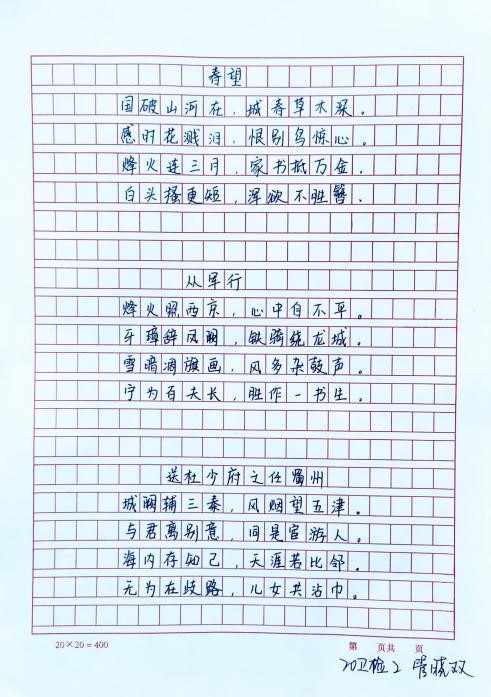 春望
国破山河在，城春草木深。
感时花溅泪，恨别鸟惊心。
烽火连三月，家书抵万金。
白头搔更短，浑欲不胜簪。
从军行
烽火照西京，心中自不平。
牙璋辞凤阙，铁骑绕龙城。
雪暗凋旗画，风多杂鼓声。
宁为百夫长，胜作一书生。
送杜少府之任蜀州
城阙辅三秦，风烟望五津。
与君离别意，同是宦游人。
海内存知己，天涯若比邻。
无为在歧路，儿女共沾巾。
20×20=400 第 页共 页
20卫检2 晓双